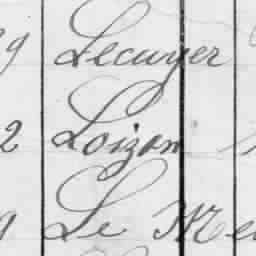 9 Lecuyer
2 Loizon
Le Me